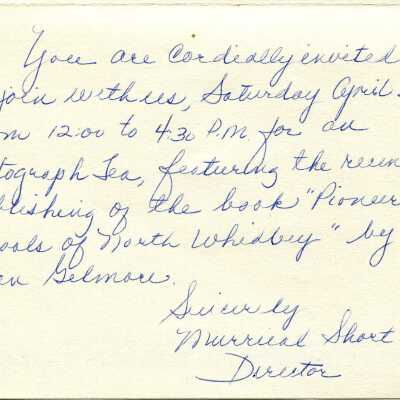 You are cordially invited
join with us, Saturday April
m 12:00 to 4:30 P.M. for an
tograph Tea, featuring the recen
blishing of the book "Pioneer
ools of North Whidbey" by
en Gelmore.
Sincerely
Murrieal Short
Director